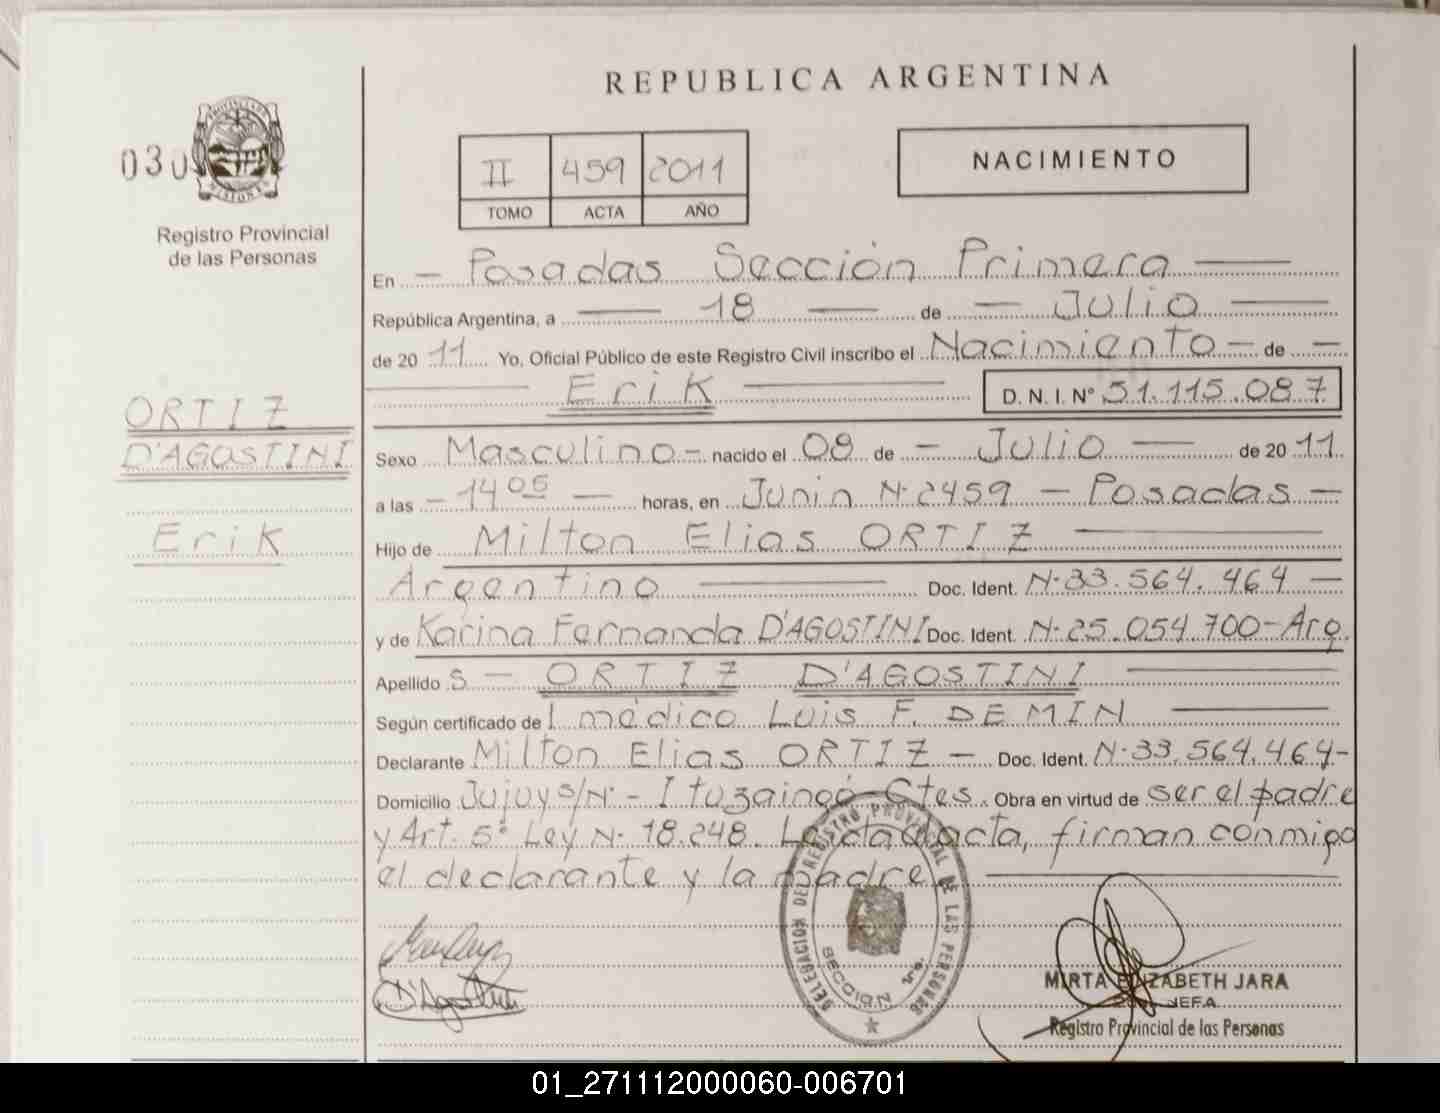 REPUBLICA ARGENTINA
PROVINCIA DE
MISIONES
030
Registro Provincial
de las Personas
II 459 2011
TOMO ACTA AÑO
NACIMIENTO
En — Posadas Sección Primera —
República Argentina, a — 18 — de — Julio —
de 2011 Yo, Oficial Público de este Registro Civil inscribo el Nacimiento — de —
— Erik — D. N. I. Nº 51.115.087
ORTIZ
D'AGOSTINI
Erik
Sexo Masculino — nacido el 08 de — Julio — de 2011
a las — 14 05 — horas, en Junin N· 2459 — Posadas —
Hijo de Milton Elias ORTIZ —
Argentino — Doc. Ident. N·33.564.464 —
y de Karina Fernanda D'AGOSTINI Doc. Ident. N·25.054.700-Arg.
Apellido S — ORTIZ D'AGOSTINI —
Según certificado del médico Luis F. DEMIN —
Declarante Milton Elias ORTIZ — Doc. Ident. N·33.564.464-
Domicilio Jujuy s/N· - Ituzaingó Ctes. Obra en virtud de ser el padre
y Art. 5º Ley N· 18.248. Leída acta, firman conmigo
el declarante y la madre. —
D'Agostini
DELEGACION DEL REGISTRO PROVINCIAL DE LAS PERSONAS
SECCION 1ra.
MIRTA ELIZABETH JARA
JEFA
Registro Provincial de las Personas
01_271112000060-006701